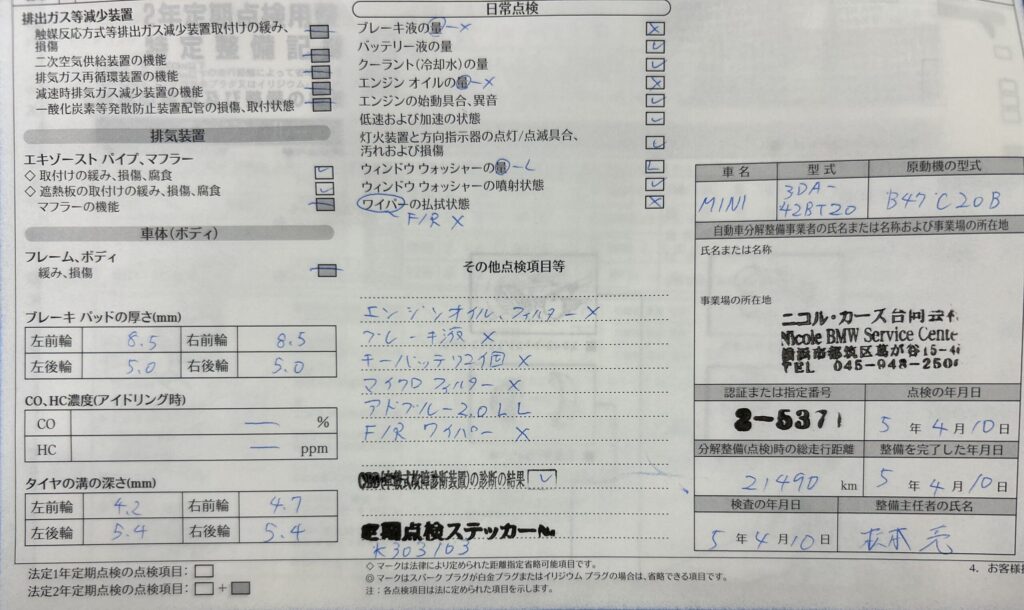 排出ガス等減少装置
触媒反応方式等排出ガス減少装置取付けの緩み、
損傷
二次空気供給装置の機能
排気ガス再循環装置の機能
減速時排気ガス減少装置の機能
一酸化炭素等発散防止装置配管の損傷、取付状態
排気装置
エキゾースト パイプ、マフラー
◇ 取付けの緩み、損傷、腐食
◇ 遮熱板の取付けの緩み、損傷、腐食
マフラーの機能
車体(ボディ)
フレーム、ボディ
緩み、損傷
ブレーキ パッドの厚さ(mm)
左前輪 8.5 右前輪 8.5
左後輪 5.0 右後輪 5.0
CO、HC濃度(アイドリング時)
CO — %
HC — ppm
タイヤの溝の深さ(mm)
左前輪 4.2 右前輪 4.7
左後輪 5.4 右後輪 5.4
法定1年定期点検の点検項目:
法定2年定期点検の点検項目: +
日常点検
ブレーキ液の量-×
バッテリー液の量
クーラント(冷却水)の量
エンジン オイルの量-×
エンジンの始動具合、異音
低速および加速の状態
灯火装置と方向指示器の点灯/点滅具合、
汚れおよび損傷
ウィンドウ ウォッシャーの量-L L
ウィンドウ ウォッシャーの噴射状態
ワイパーの払拭状態
F/R ×
その他点検項目等
エンジンオイル、フィルター ×
ブレーキ液 ×
キーバッテリー2個 ×
マイクロフィルター ×
アドブルー2.0L L
F/R ワイパー ×
の診断の結果
定期点検ステッカーNo.
K303163
◇ マークは法律により定められた距離指定省略可能項目です。
◎ マークはスパーク プラグが白金プラグまたはイリジウム プラグの場合は、省略できる項目です。
注:各点検項目は法に定められた項目を示します。
車名 型式 原動機の型式
MINI 3DA-42BT20 B47C20B
自動車分解整備事業者の氏名または名称および事業場の所在地
氏名または名称
事業場の所在地
ニコル・カーズ合同会社
Nicole BMW Service Center
横浜市都筑区葛が谷15-4
TEL 045-948-250
認証または指定番号 点検の年月日
2-5371 5 年 4 月 10 日
分解整備(点検)時の総走行距離 整備を完了した年月日
21490 km 5 年 4 月 10 日
検査の年月日 整備主任者の氏名
5 年 4 月 10 日 松本 亮
4. お客様